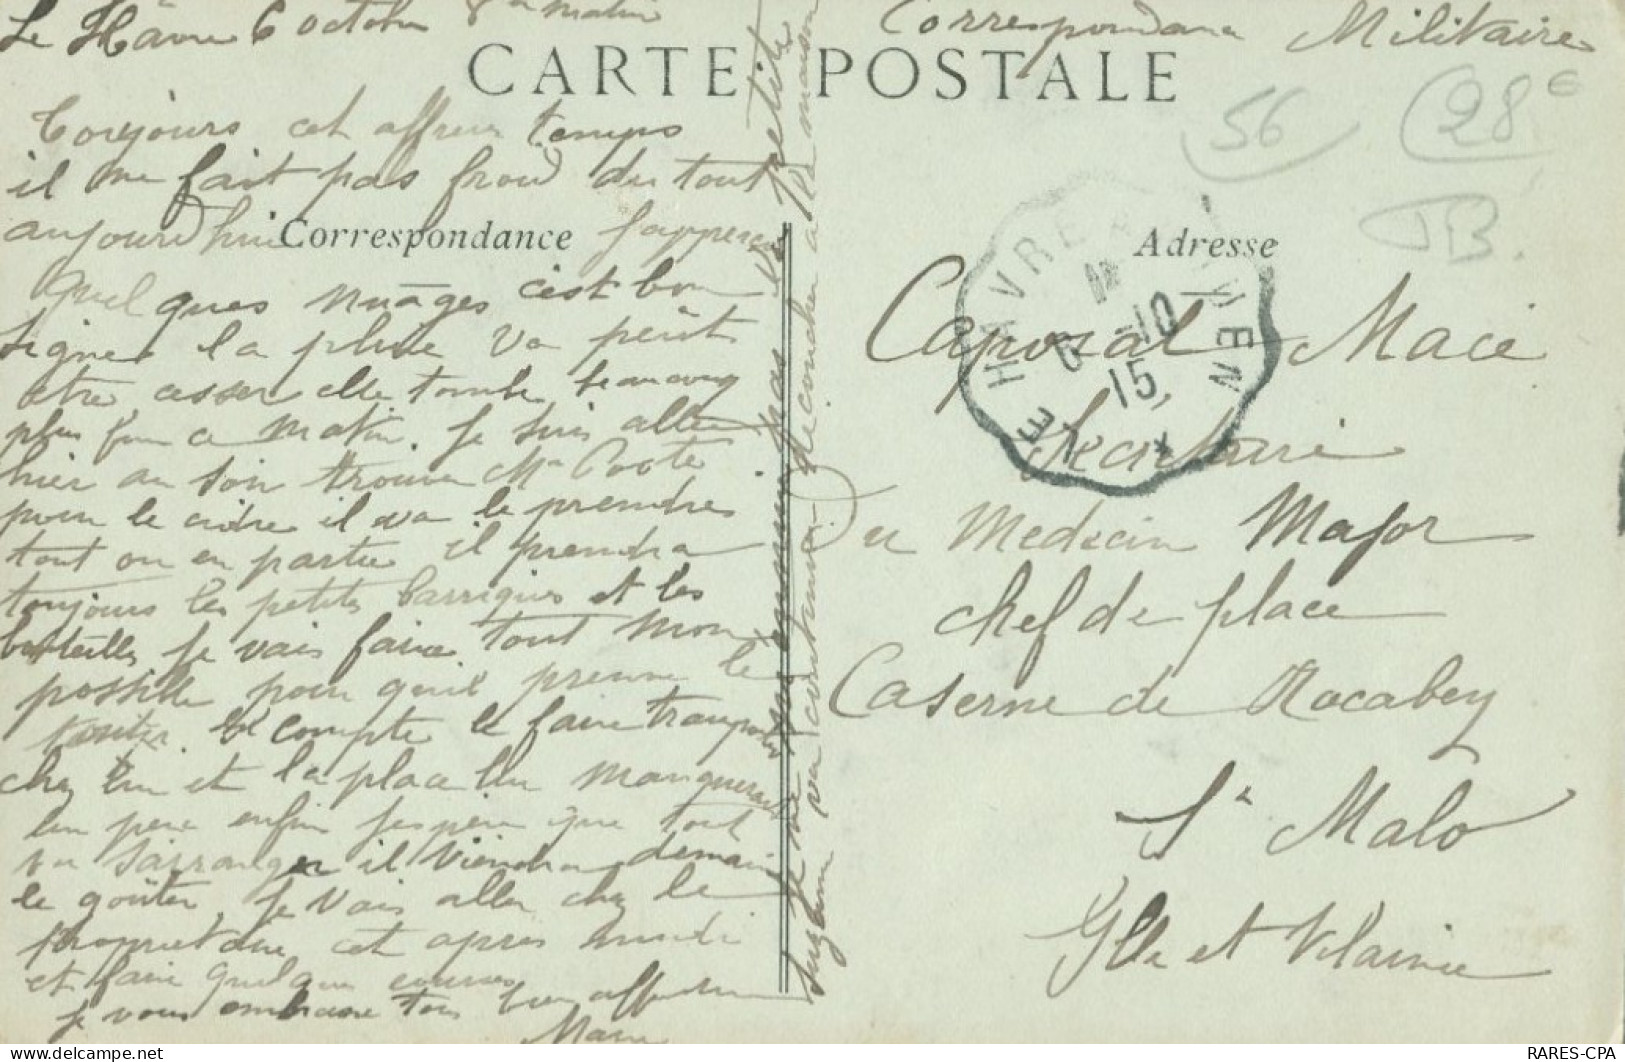 Le Hâvre 6 octobre 8h matin
Correspondance Militaire
CARTE POSTALE
56
28€
TB.
Toujours cet affreux temps
il ne fait pas froid du tout
aujourd'hui j'apperçois
Correspondance
quelques nuages c'est bon
signe la pluie va peut
etre cesser elle tombe beaucoup
plus fin ce matin. Je suis allée
hier au soir trouver Mr
pour le cidre il va le prendre
tout ou en partie il prendra
toujours les petits barriques et les
bouteilles je vais faire tout mon
possible pour qu'il prenne le
compte le faire transporter
chez lui et la place lui manquerait
un peu enfin j'espère que tout
va s'arranger il viendra demain
le goûter. Je vais aller chez le
propriétaire cet apres midi
et faire quelques courses
je vous embrasse tous bien affectueu
Marie
Adresse
LE HAVRE A ROUEN
6 -10
15
Caporal Macé
Secretaire
Du Medecin Major
chef de place
Caserne de Rocabey
St Malo
Ille et Vilaine
RARES-CPA